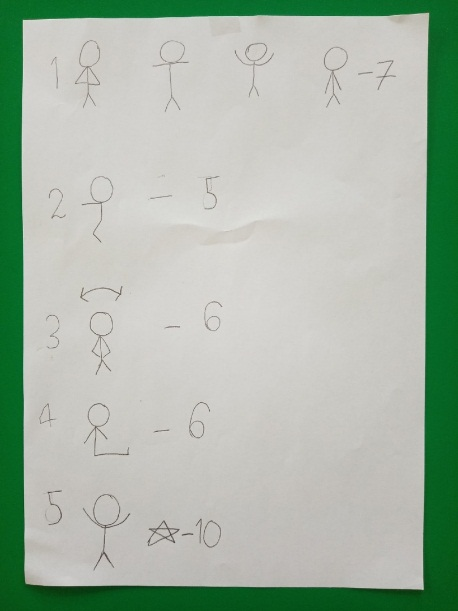 1 -7
2 - 5
3 - 6
4 - 6
5 -10